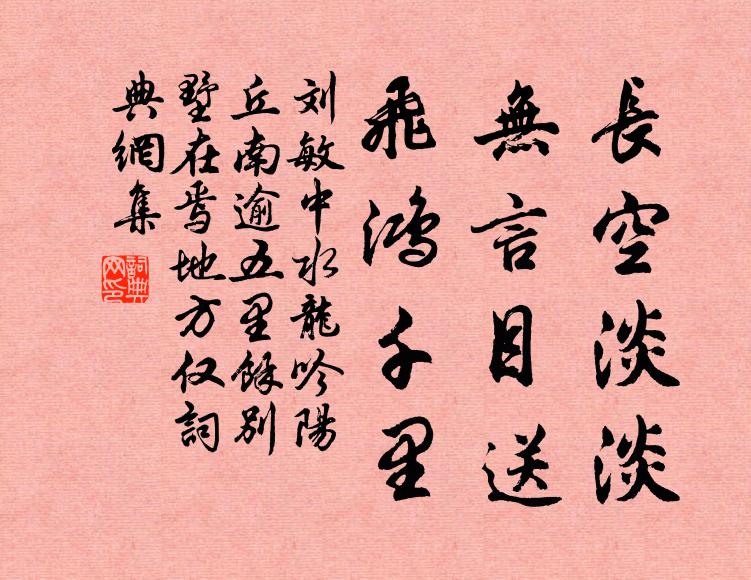 長空淡淡
無言目送
飛鴻千里
刘敏中水龍吟陽
丘南逾五里餘別
墅在焉地方仅詞
典網集
詞典网印